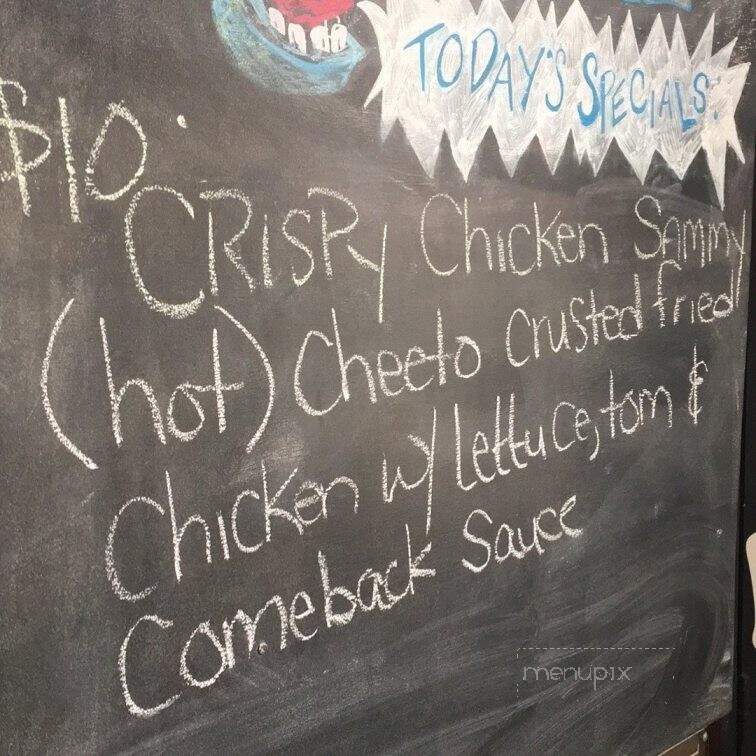 TODAY'S SPECIALS:
$10.
CRISPY Chicken Sammy
(hot) Cheeto Crusted fried
Chicken w/ Lettuce, tom &
Comeback Sauce
menupix